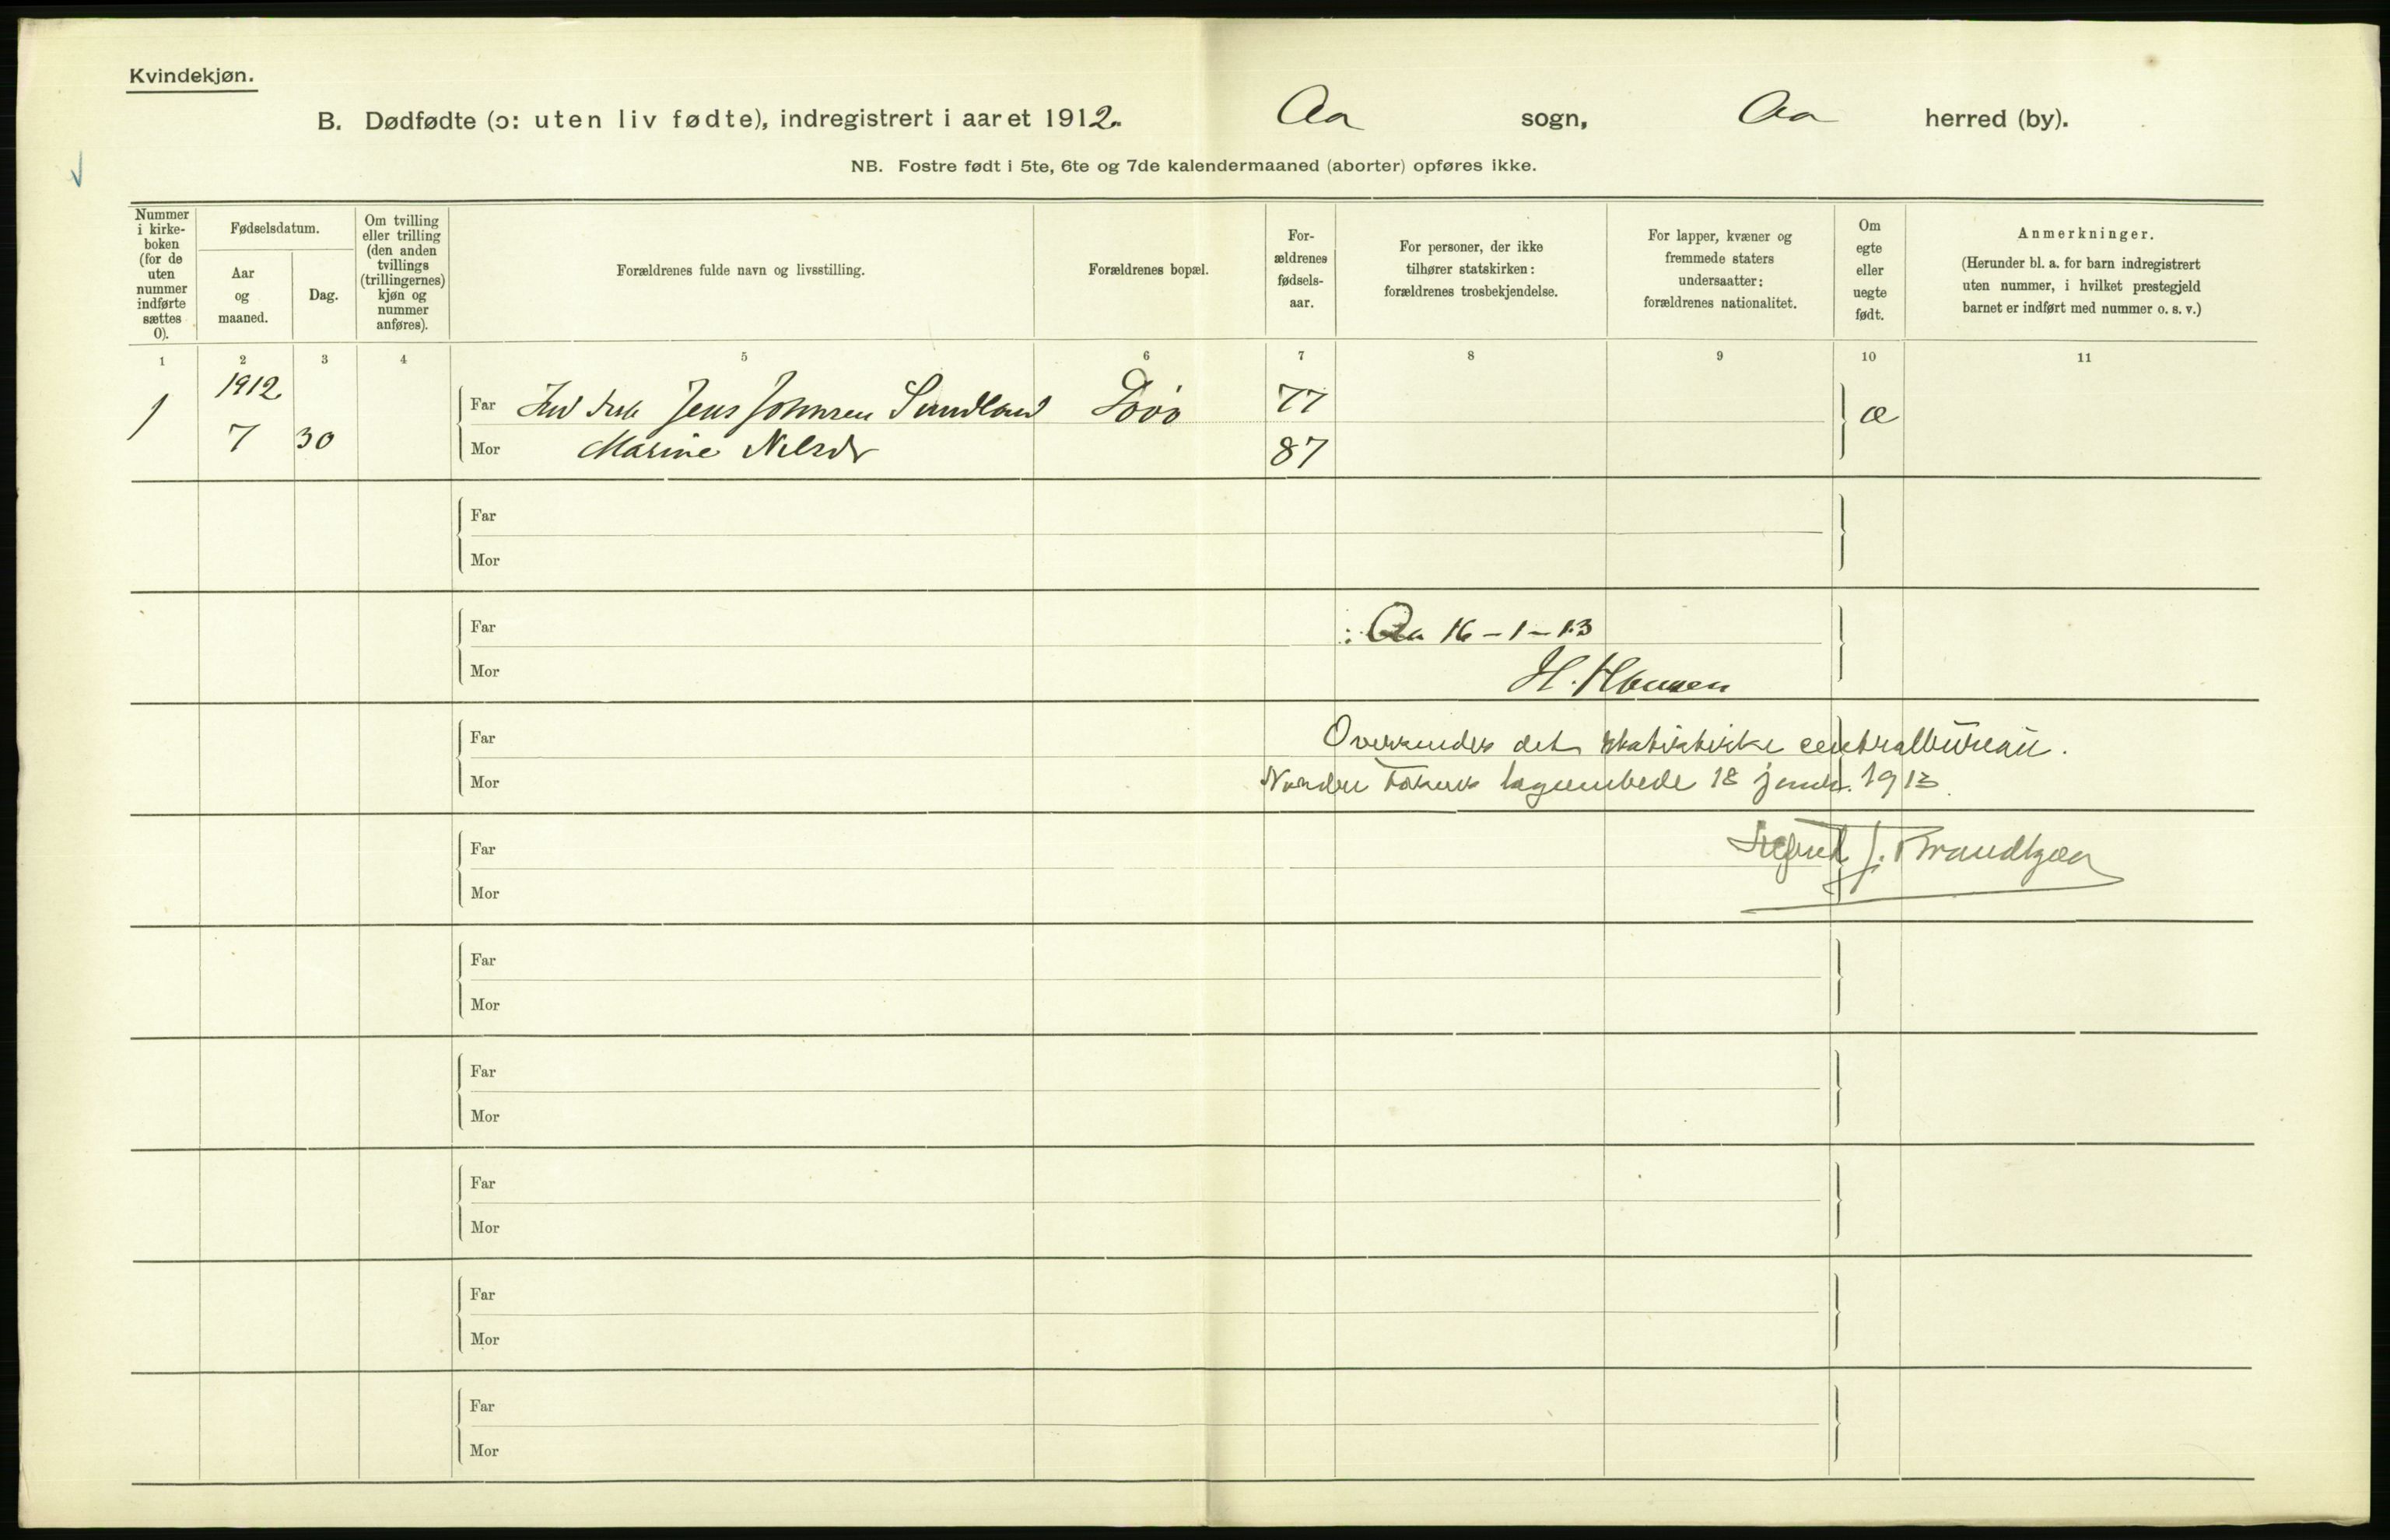 Kvindekjøn.
B. Dødfødte (ɔ: uten liv fødte), indregistrert i aaret 1912. Aa sogn, Aa herred (by).
NB. Fostre født i 5te, 6te og 7de kalendermaaned (aborter) opføres ikke.
Nummer i kirke- boken (for de uten nummer indførte sættes 0).
Fødselsdatum.
Aar og maaned.
Dag.
Om tvilling eller trilling (den anden tvillings (trillingernes) kjøn og nummer anføres).
Forældrenes fulde navn og livsstilling.
Forældrenes bopæl.
For- ældrenes fødsels- aar.
For personer, der ikke tilhører statskirken: forældrenes trosbekjendelse.
For lapper, kvæner og fremmede staters undersaatter: forældrenes nationalitet.
Om egte eller uegte født.
Anmerkninger.
(Herunder bl. a. for barn indregistrert uten nummer, i hvilket prestegjeld barnet er indført med nummer o. s. v.)
1 2 3 4 5 6 7 8 9 10 11
1912
1 7 30
Far Jens Johnsen Sundland 77 æ
Mor Marine Nilsdr 87
Far
Mor
Far Aa 16-1-13
Mor H. Hansen
Far Oversendes det statistiske centralbureau.
Mor Nordre 18 januar 1913
Far
Mor
Far
Mor
Far
Mor
Far
Mor
Far
Mor
Far
Mor